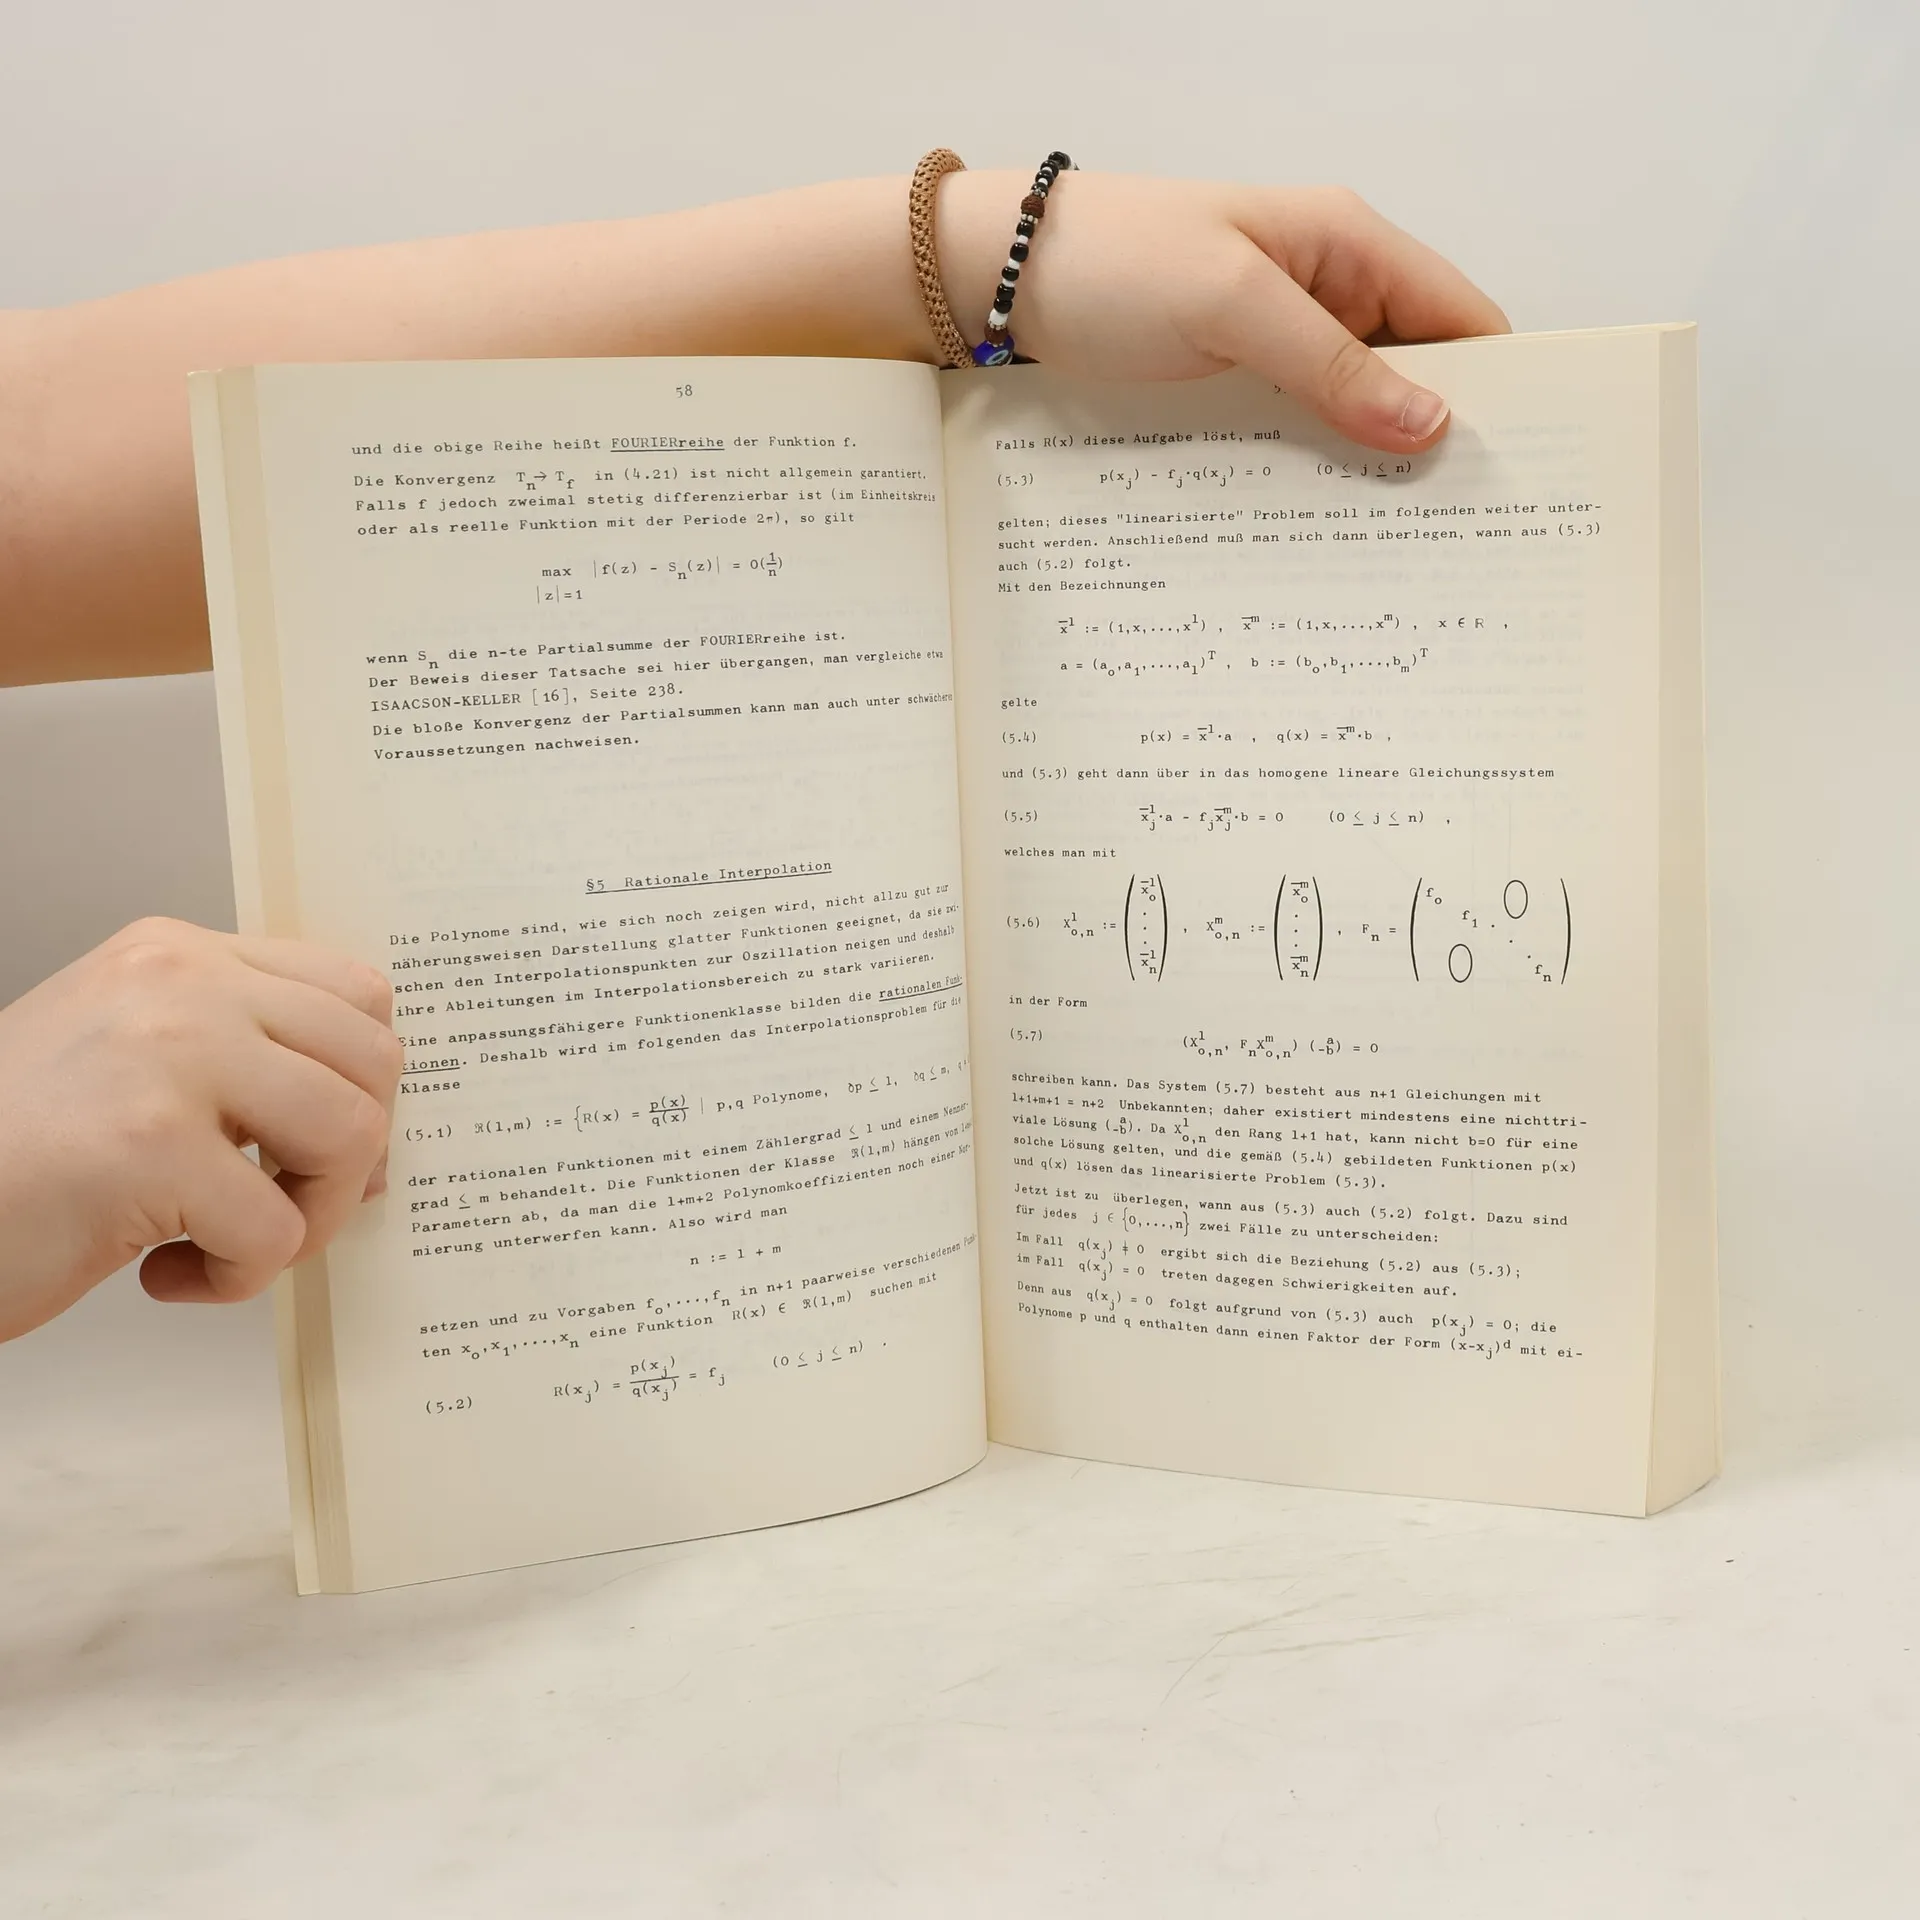 58
und die obige Reihe heißt FOURIERreihe der Funktion f.
Die Konvergenz T_n → T_f in (4.21) ist nicht allgemein garantiert.
Falls f jedoch zweimal stetig differenzierbar ist (im Einheitskreis
oder als reelle Funktion mit der Periode 2π), so gilt
max |f(z) - S_n(z)| = O(1/n)
|z|=1
wenn S_n die n-te Partialsumme der FOURIERreihe ist.
Der Beweis dieser Tatsache sei hier übergangen, man vergleiche etwa
ISAACSON-KELLER [16], Seite 238.
Die bloße Konvergenz der Partialsummen kann man auch unter schwächeren
Voraussetzungen nachweisen.
§5 Rationale Interpolation
Die Polynome sind, wie sich noch zeigen wird, nicht allzu gut zur
näherungsweisen Darstellung glatter Funktionen geeignet, da sie zwi-
schen den Interpolationspunkten zur Oszillation neigen und deshalb
ihre Ableitungen im Interpolationsbereich zu stark variieren.
Eine anpassungsfähigere Funktionenklasse bilden die rationalen Funk-
tionen. Deshalb wird im folgenden das Interpolationsproblem für die
Klasse
(5.1) ℜ(l,m) := {R(x) = p(x)/q(x) | p,q Polynome, ∂p ≤ l, ∂q ≤ m,
der rationalen Funktionen mit einem Zählergrad ≤ l und einem Nenner-
grad ≤ m behandelt. Die Funktionen der Klasse ℜ(l,m) hängen von
Parametern ab, da man die l+m+2 Polynomkoeffizienten noch einer Nor-
mierung unterwerfen kann. Also wird man
n := l + m
setzen und zu Vorgaben f_o,...,f_n in n+1 paarweise verschiedenen Punk-
ten x_o,x_1,...,x_n eine Funktion R(x) ∈ ℜ(l,m) suchen mit
(5.2) R(x_j) = p(x_j)/q(x_j) = f_j (0 ≤ j ≤ n) .
Falls R(x) diese Aufgabe löst, muß
(5.3) p(x_j) - f_j·q(x_j) = 0 (0 ≤ j ≤ n)
gelten; dieses "linearisierte" Problem soll im folgenden weiter unter-
sucht werden. Anschließend muß man sich dann überlegen, wann aus (5.3)
auch (5.2) folgt.
Mit den Bezeichnungen
x̄^l := (1,x,...,x^l) , x̄^m := (1,x,...,x^m) , x ∈ R ,
a = (a_o,a_1,...,a_l)^T , b := (b_o,b_1,...,b_m)^T
gelte
(5.4) p(x) = x̄^l·a , q(x) = x̄^m·b ,
und (5.3) geht dann über in das homogene lineare Gleichungssystem
(5.5) x̄_j^l·a - f_j x̄_j^m·b = 0 (0 ≤ j ≤ n) ,
welches man mit
(5.6) X^l_o,n := (x̄_o^l . . . x̄_n^l) , X^m_o,n := (x̄_o^m . . . x̄_n^m) , F_n = (f_o f_1 . . . f_n 0 0)
in der Form
(5.7) (X^l_o,n, F_n X^m_o,n) (a -b) = 0
schreiben kann. Das System (5.7) besteht aus n+1 Gleichungen mit
l+1+m+1 = n+2 Unbekannten; daher existiert mindestens eine nichttri-
viale Lösung (a -b). Da X^l_o,n den Rang l+1 hat, kann nicht b=0 für eine
solche Lösung gelten, und die gemäß (5.4) gebildeten Funktionen p(x)
und q(x) lösen das linearisierte Problem (5.3).
Jetzt ist zu überlegen, wann aus (5.3) auch (5.2) folgt. Dazu sind
für jedes j ∈ {0,...,n} zwei Fälle zu unterscheiden:
Im Fall q(x_j) ≠ 0 ergibt sich die Beziehung (5.2) aus (5.3);
im Fall q(x_j) = 0 treten dagegen Schwierigkeiten auf.
Denn aus q(x_j) = 0 folgt aufgrund von (5.3) auch p(x_j) = 0; die
Polynome p und q enthalten dann einen Faktor der Form (x-x_j)^d mit ei-